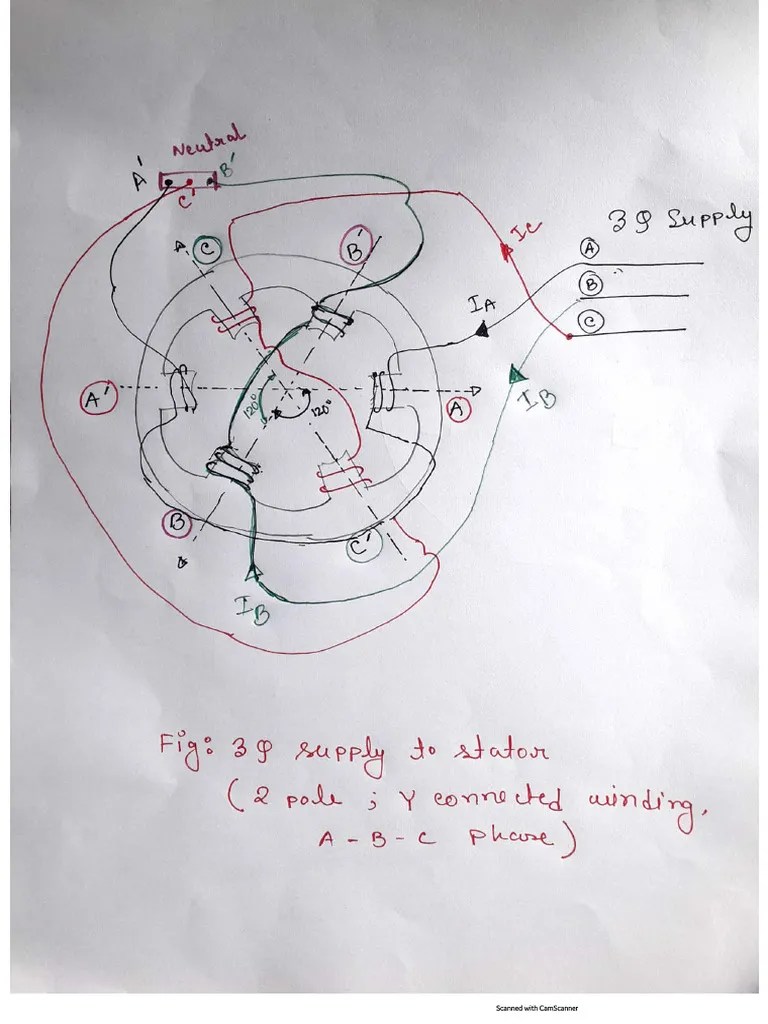 Neutral
A' B'
C'
3φ Supply
C
B'
A
B
C
IC
IA
IB
A'
120°
120°
A
B
C'
IB
Fig: 3φ supply to stator
(2 pole ; Y connected winding,
A - B - C phase)
Scanned with CamScanner